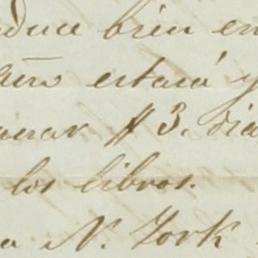 duce bien en
año estará y
anar $3. dia
los libros.
a N. York